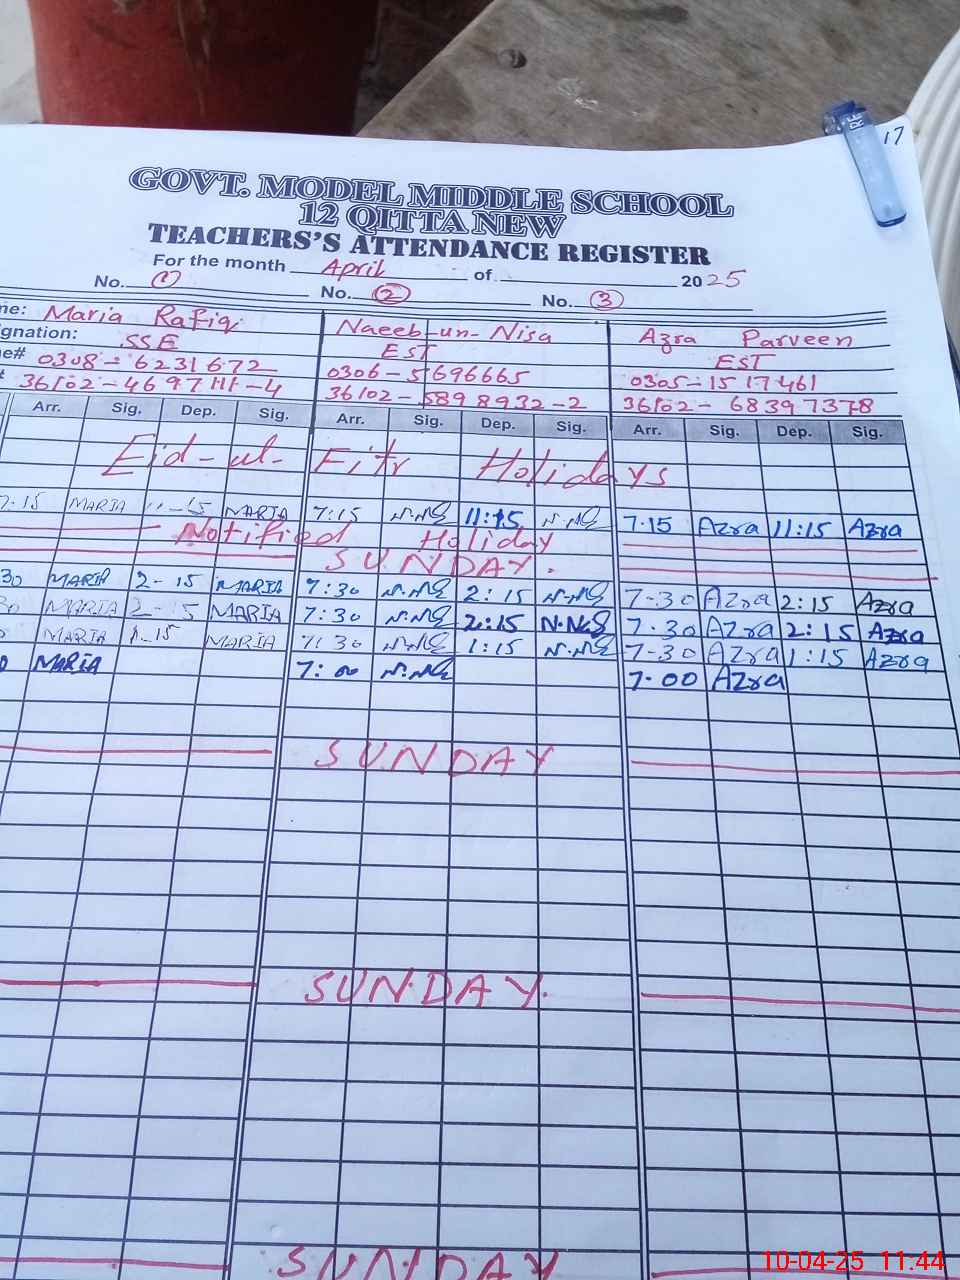 17
GOVT. MODEL MIDDLE SCHOOL
12 QITTA NEW
TEACHERS'S ATTENDANCE REGISTER
For the month April of 2025
No. 1 No. 2 No. 3
me: Maria Rafiq Naeeb-un-Nisa Azra Parveen
ignation: SSE EST EST
e# 0308-6231672 0306-5696665 0305-1517461
36102-4697111-4 36102-5898932-2 36102-68397378
Arr. Sig. Dep. Sig. Arr. Sig. Dep. Sig. Arr. Sig. Dep. Sig.
Eid-ul-Fitr Holidays
7-15 MARIA 11-15 MARIA 7:15 N.NS 11:15 N.NS 7.15 Azra 11:15 Azra
Notified Holiday
SUNDAY.
30 MARIA 2-15 MARIA 7:30 N.NS 2:15 N.NS 7-30 Azra 2:15 Azra
30 MARIA 2-15 MARIA 7:30 N.NS 2:15 N.NS 7.30 Azra 2:15 Azra
MARIA 1-15 MARIA 7:30 N.NS 1:15 N.NS 7-30 Azra 1:15 Azra
MARIA 7:00 N.NS 7.00 Azra
SUNDAY
SUNDAY.
SUNDAY
10-04-25 11:44